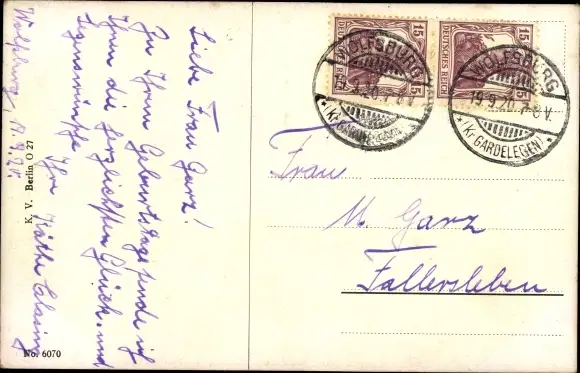 Liebe Frau Garz!
Zu Ihrem Geburtstage sende ich
Ihnen die herzlichsten Glück- und
Segenswünsche
Ihre Käthe
Wolfsburg, 17.9.20.
K. V. Berlin O 27
No. 6070
15 15
DEUTSCHES REICH
15 15
DEUTSCHES REICH
WOLFSBURG
9.20.7-8V.
* (Kr. GARDELEGEN) *
WOLFSBURG
19.9.20.7-8V.
* (Kr. GARDELEGEN) *
Frau
M. Garz
Fallersleben